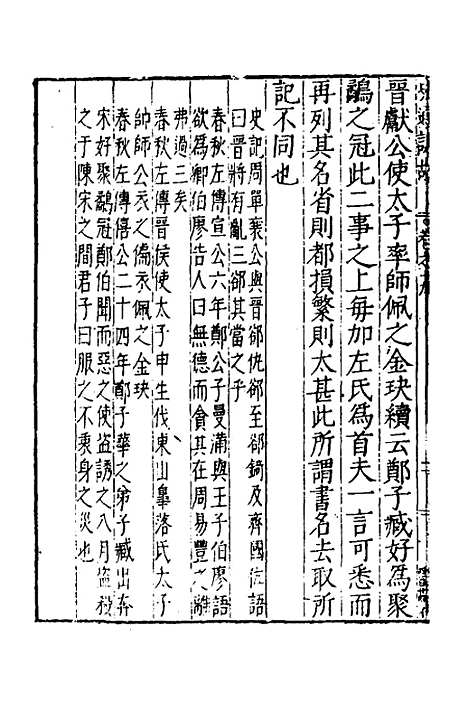 晉獻公使太子率師佩之金玦續云鄭子臧好爲聚
鷸之冠此二事之上每加左氏爲首夫一言可悉而
再列其名省則都損繁則太甚此所謂書名去取所
記不同也
史記周單襄公與晉郤犨郤至郤錡及齊國佐語
曰晉將有亂三郤其當之乎
春秋左傳宣公六年鄭公子曼滿與王子伯廖語
欲爲卿伯廖告人曰無德而貪其在周易豐之離
弗過三矣
春秋左傳晉侯使太子申生伐東山皋落氏太子
帥師公衣之偏衣佩之金玦
春秋左傳僖公二十四年鄭子華之弟子臧出奔
宋好聚鷸冠鄭伯聞而惡之使盜誘之八月盜殺
之于陳宋之間君子曰服之不衷身之災也